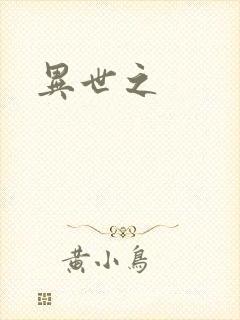 異世之
黄小鳥